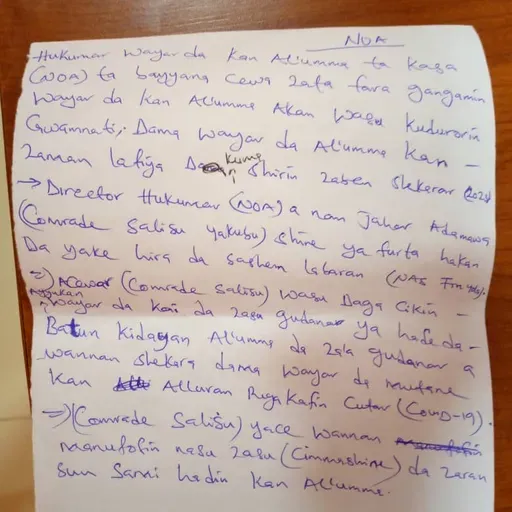 NOA
Hukumar Wayar da Kan Al'umma ta Kasa
(NOA) ta bayyana Cewa Zata fara gangamin
Wayar da Kan Al'umma Akan Wasu Kudurorin
Gwamnati, Dama Wayar da Al'umma Kan -
Zaman lafiya kuma Shirin Zaben Shekarar (2023)
→ Director Hukumar (NOA) a nan Jahar Adamawa
(Comrade Salisu Yakubu) Shine ya furta hakan
Da yake hira da sashen labaran (NAS FM
⇒ Acewar (Comrade Salisu) Wasu Daga Cikin -
Ayyukan Wayar da Kai da Zasu gudanar ya hada da -
Batun Kidayan Al'umma da Za'a gudanar a
Wannan Shekara dama Wayar da mutane
Kan Alluran Rugakafin Cutar (COVID-19).
⇒ (Comrade Salisu) yace Wannan
manufofin nasu Zasu (Cimmashine) da Zaran
Sun Sami hadin Kan Al'umma.